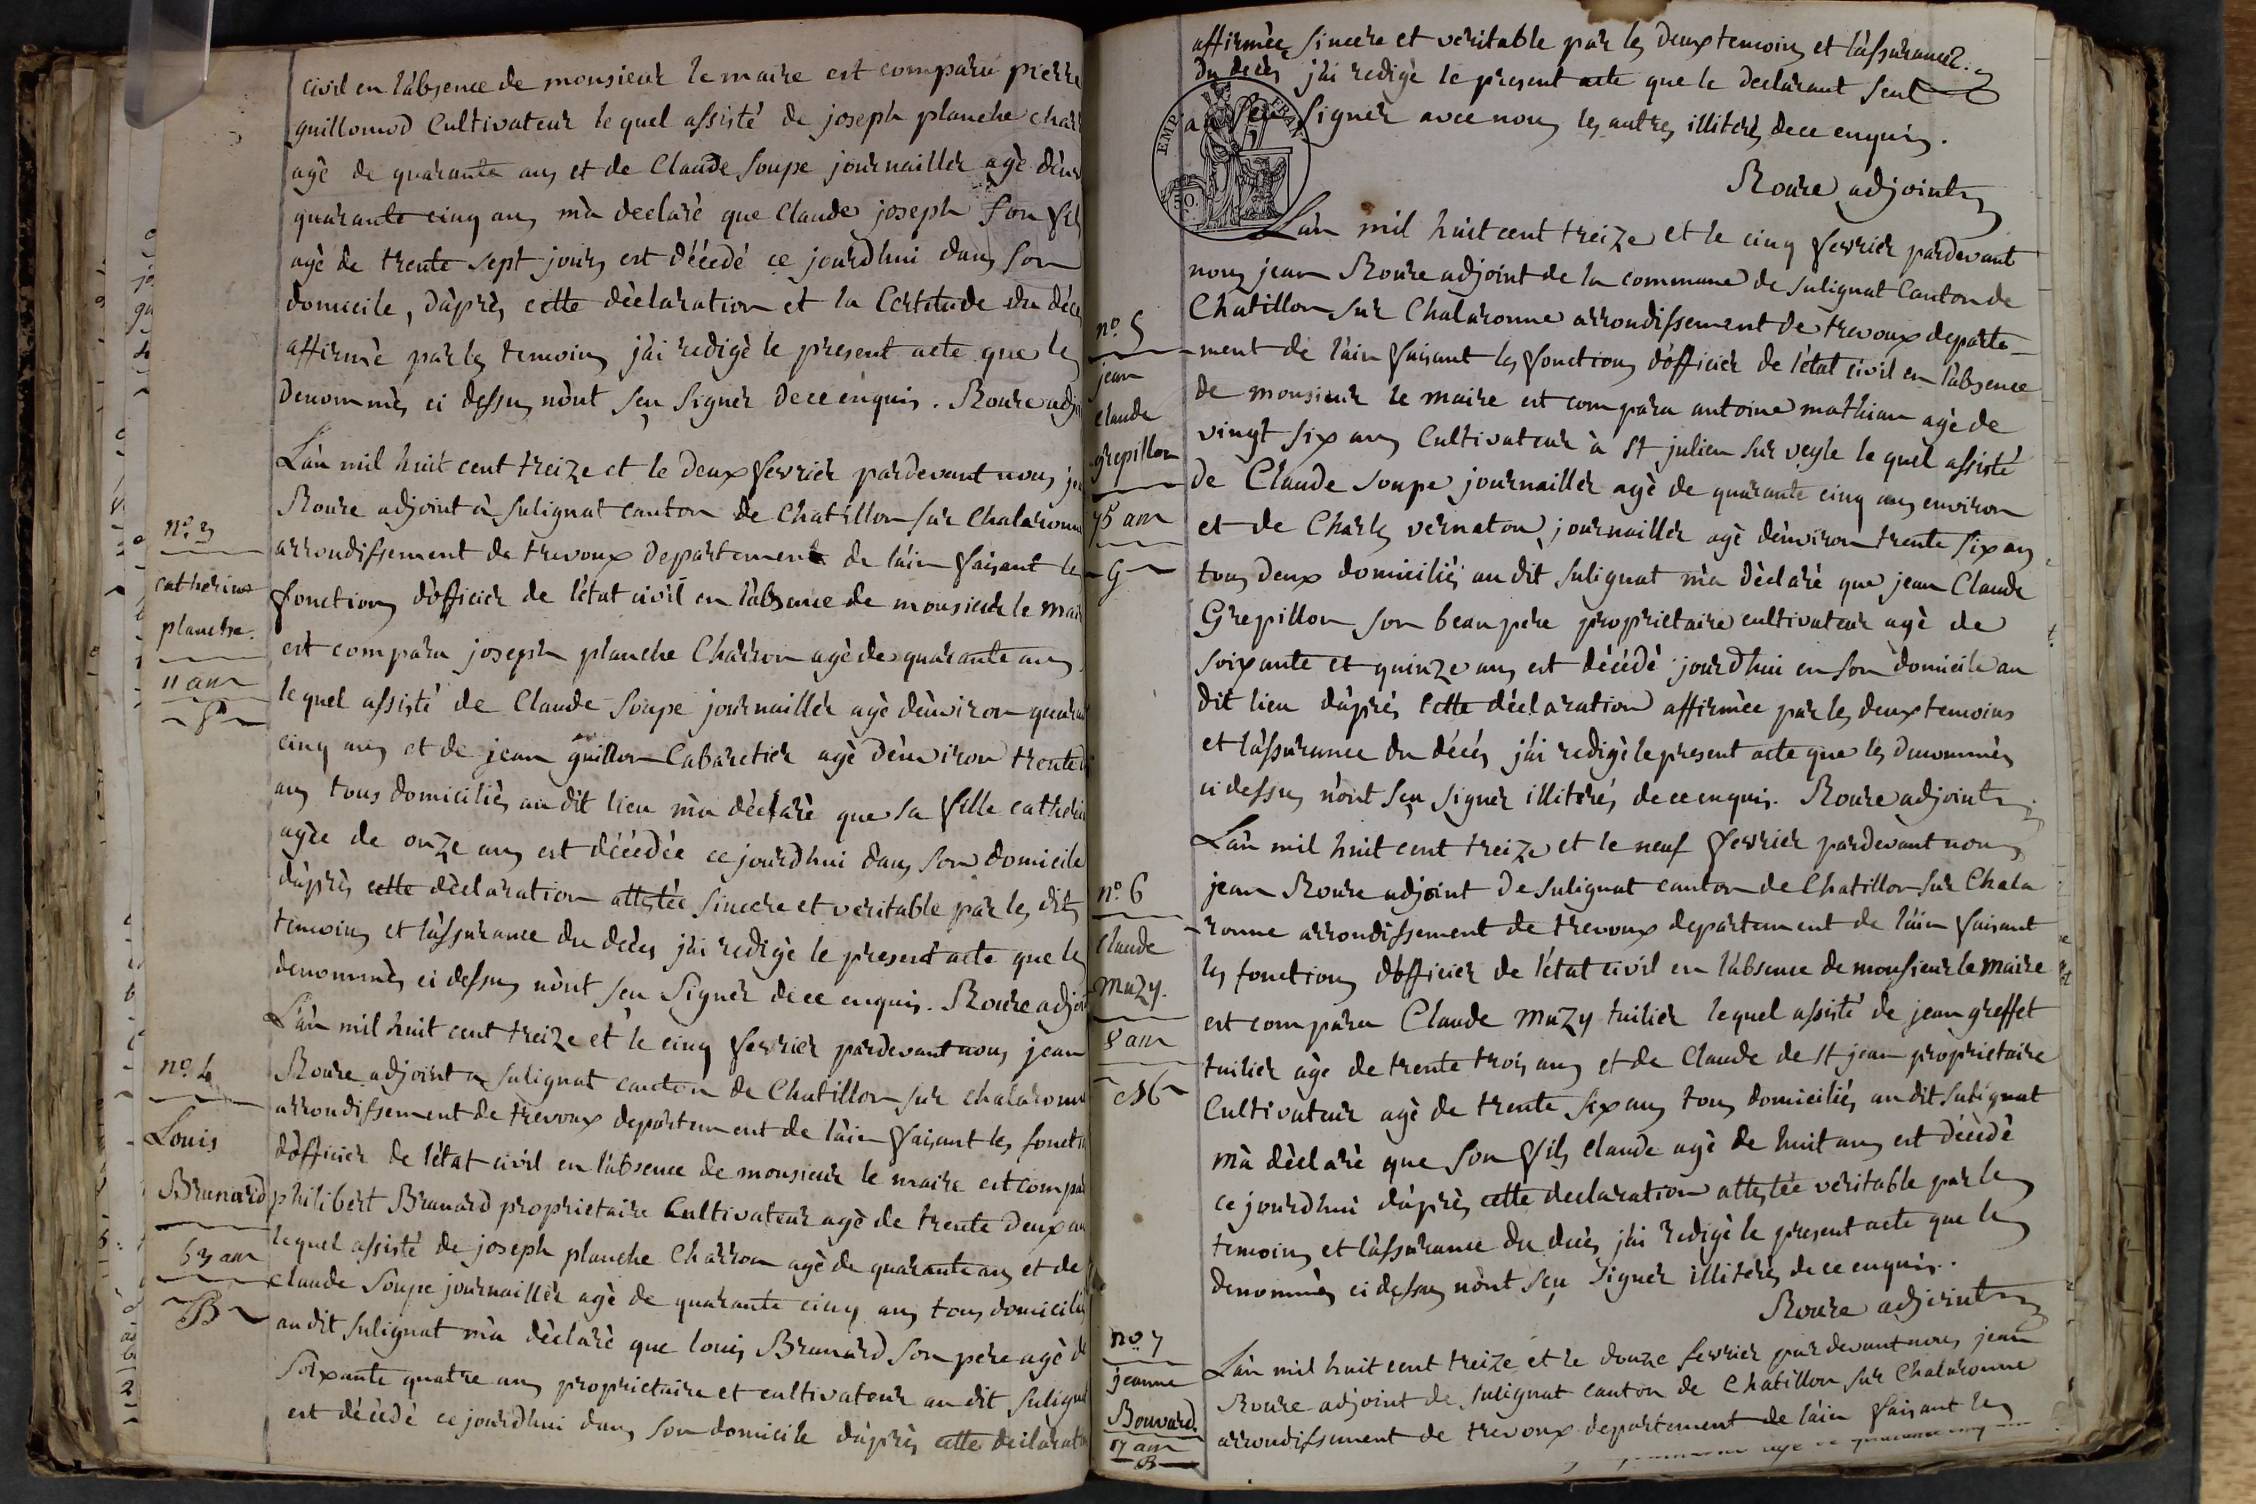 civil en l'absence de monsieur le maire est comparu pierre
guillomod Cultivateur le quel assisté de joseph planche char
agè de quarante ans et de Claude Soupe journaillér agè d'env
quarante cinq ans m'a declaré que Claude joseph Son fils
agè de trente sept jours est décedé ce jourdhui dans Son
domicile, d'après cette dèclaration et la Certitude du déces
affirmè par les temoins j'ai redigè le present acte que les
Denommés ci dessus n'ont sçu Signer de ce enquis. Roure adjoi
L'an mil huit cent treize et le deux fevrier pardevant nous je
Roure adjoint à Sulignat canton de Chatillon sur Chalaronne
arrondissement de trevoux Departement de l'ain faisant les
fonctions d'officier de l'état civil en l'absence de monsieur le mair
est comparu joseph planche Charron agè de quarante ans
le quel assisté de Claude Soupe journaillér agè d'environ quara
cinq ans et de jean guillon Cabaretier agè d'environ trente
ans tous domiciliés au dit lieu m'a dèclarè que Sa fille catherin
agèe de onze ans est décédée ce jourdhui dans Son domicile
d'après cette dèclaration attestée sincere et veritable par les dits
temoins et l'assurance du decès j'ai redigè le present acte que les
denommés ci dessus n'ont sçu Signer de ce enquis. Roure adjoi
L'an mil huit cent treize et le cinq fevrier pardevant nous jean
Roure adjoint a Sulignat canton de Chatillon sur chalaronn
arrondissement de trevoux departement de l'ain faisant les foncti
d'officier de l'état civil en l'absence de monsieur le maire est compa
philibert Brunard proprietaire Cultivateur agè de trente Deux an
lequel assisté de joseph planche Charron agè de quarante ans et de
Claude Soupe journaillér agè de quarante cinq ans tous domicilié
au dit Sulignat m'a dèclarè que louis Brunard Son pere agè d
Soixante quatre ans proprietaire et cultivateur au dit Suligna
est décédé ce jourdhui dans Son domicile d'après cette declarati
n° 3
catherine
planche.
11 ans
P
n° 4
Louis
Brunard
63 ans
B
affirmèe Sincere et veritable par les Deux temoins et l'assurance
Du decès j'ai redigè le present acte que le Declarant Seul
a sçu Signer avec nous les autres illiterés de ce enquis.
EMP FRAN
50
Roure adjoint
L'an mil huit cent treize et le cinq fevrier pardevant
nous jean Roure adjoint de la commune de Sulignat Canton de
Chatillon Sur Chalaronne arrondissement de trevoux departe-
ment de l'ain faisant les fonctions d'officier de l'état civil en l'absence
de monsieur le maire est comparu antoine mathian agè de
vingt six ans Cultivateur à St julien sur veyle le quel assisté
de Claude Soupe journaillér agè de quarante cinq ans environ
et de Charles vernaton journaillér agè d'environ trente six ans
tous Deux domiciliés au dit Sulignat m'a dèclaré que jean Claude
Grepillon Son beau pere proprietaire cultivateur agè de
soixante et quinze ans est décédé jourdhui en Son domicile au
dit lieu d'après Cette déclaration affirmèe par les deux temoins
et l'assurance du décés j'ai redigè le present acte que les denommés
ci dessus n'ont sçu Signer illiterés de ce enquis. Roure adjoint
L'an mil huit cent treize et le neuf fevrier pardevant nous
jean Roure adjoint de Sulignat canton de Chatillon sur Chala
-ronne arrondissement de trevoux departement de l'ain faisant
les fonctions d'officier de l'état civil en l'absence de monsieur le Maire
est comparu Claude Muzy tuilier lequel assisté de jean greffet
tuilier agè de trente trois ans et de Claude de St jean proprietaire
Cultivateur agè de trente six ans tous domiciliés au dit Sulignat
m'a dèclaré que Son fils Claude agè de huit ans est décédè
ce jourdhui d'après cette declaration attestée veritable par les
temoins et l'assurance du deces j'ai redigè le present acte que les
denommés ci dessus n'ont sçu Signer illiterés de ce enquis.
Roure adjoint
L'an mil huit cent treize et le douze fevrier pardevant nous jean
Roure adjoint de Sulignat canton de Chatillon sur Chalaronne
arrondissement de trevoux departement de l'ain faisant les
n° 5
jean
claude
grepillon
75 ans
G
n° 6
claude
muzy.
8 ans
M
n° 7
jeanne
Bouvard.
17 ans
B